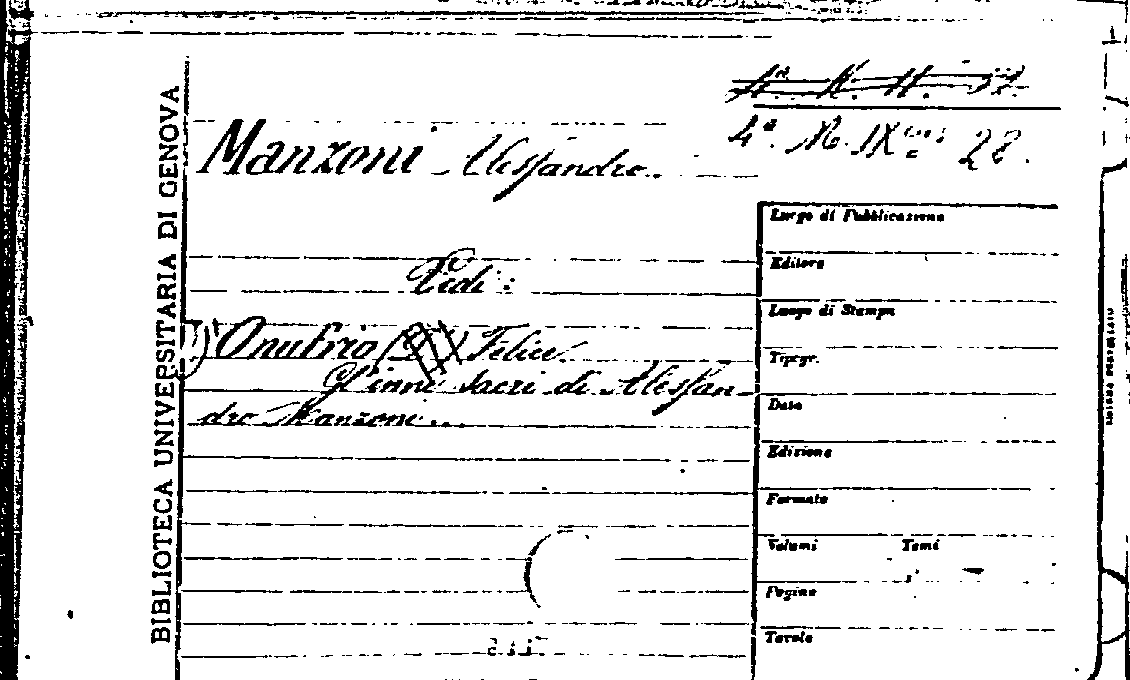 BIBLIOTECA UNIVERSITARIA DI GENOVA
4ª. R. IX 28.
Manzoni Alessandro.
Vedi:
Onufrio Felice.
Gl'inni sacri di Alessan-
dro Manzoni...
Luogo di Pubblicazione
Editore
Luogo di Stampa
Tipogr.
Data
Edizione
Formato
Volumi Tomi
Pagine
Tavole